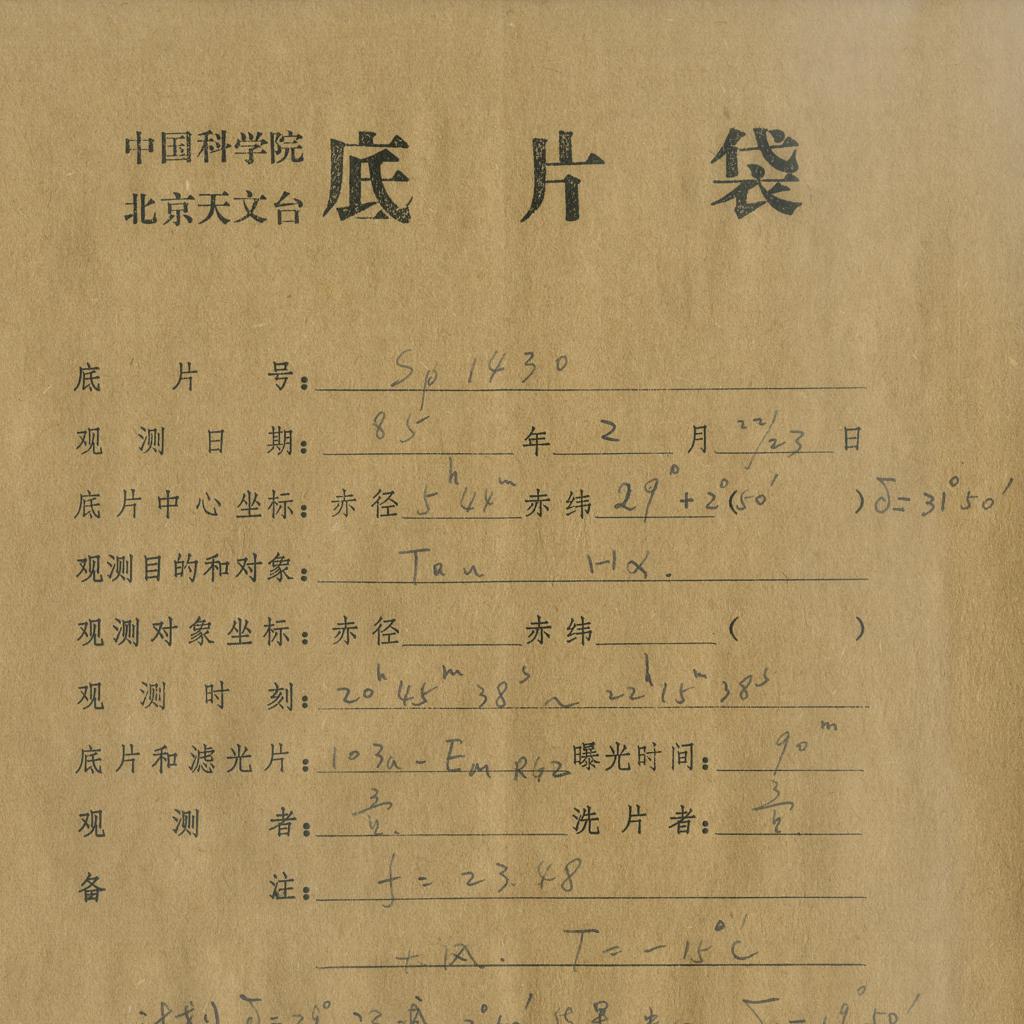 中国科学院
北京天文台 底片袋
底片号： Sp 1430
观测日期： 85 年 2 月 22/23 日
底片中心坐标：赤径 5ʰ44ᵐ 赤纬 29°+2°(50′ ) δ=31°50′
观测目的和对象： Tau Hα.
观测对象坐标：赤径 赤纬 ( )
观测时刻： 20ʰ45ᵐ38ˢ ~ 22ʰ15ᵐ38ˢ
底片和滤光片： 103a-Em RG2 曝光时间： 90ᵐ
观测者： 洗片者：
备注： f = 23.48
大风. T = -15°C
计划 δ=29°